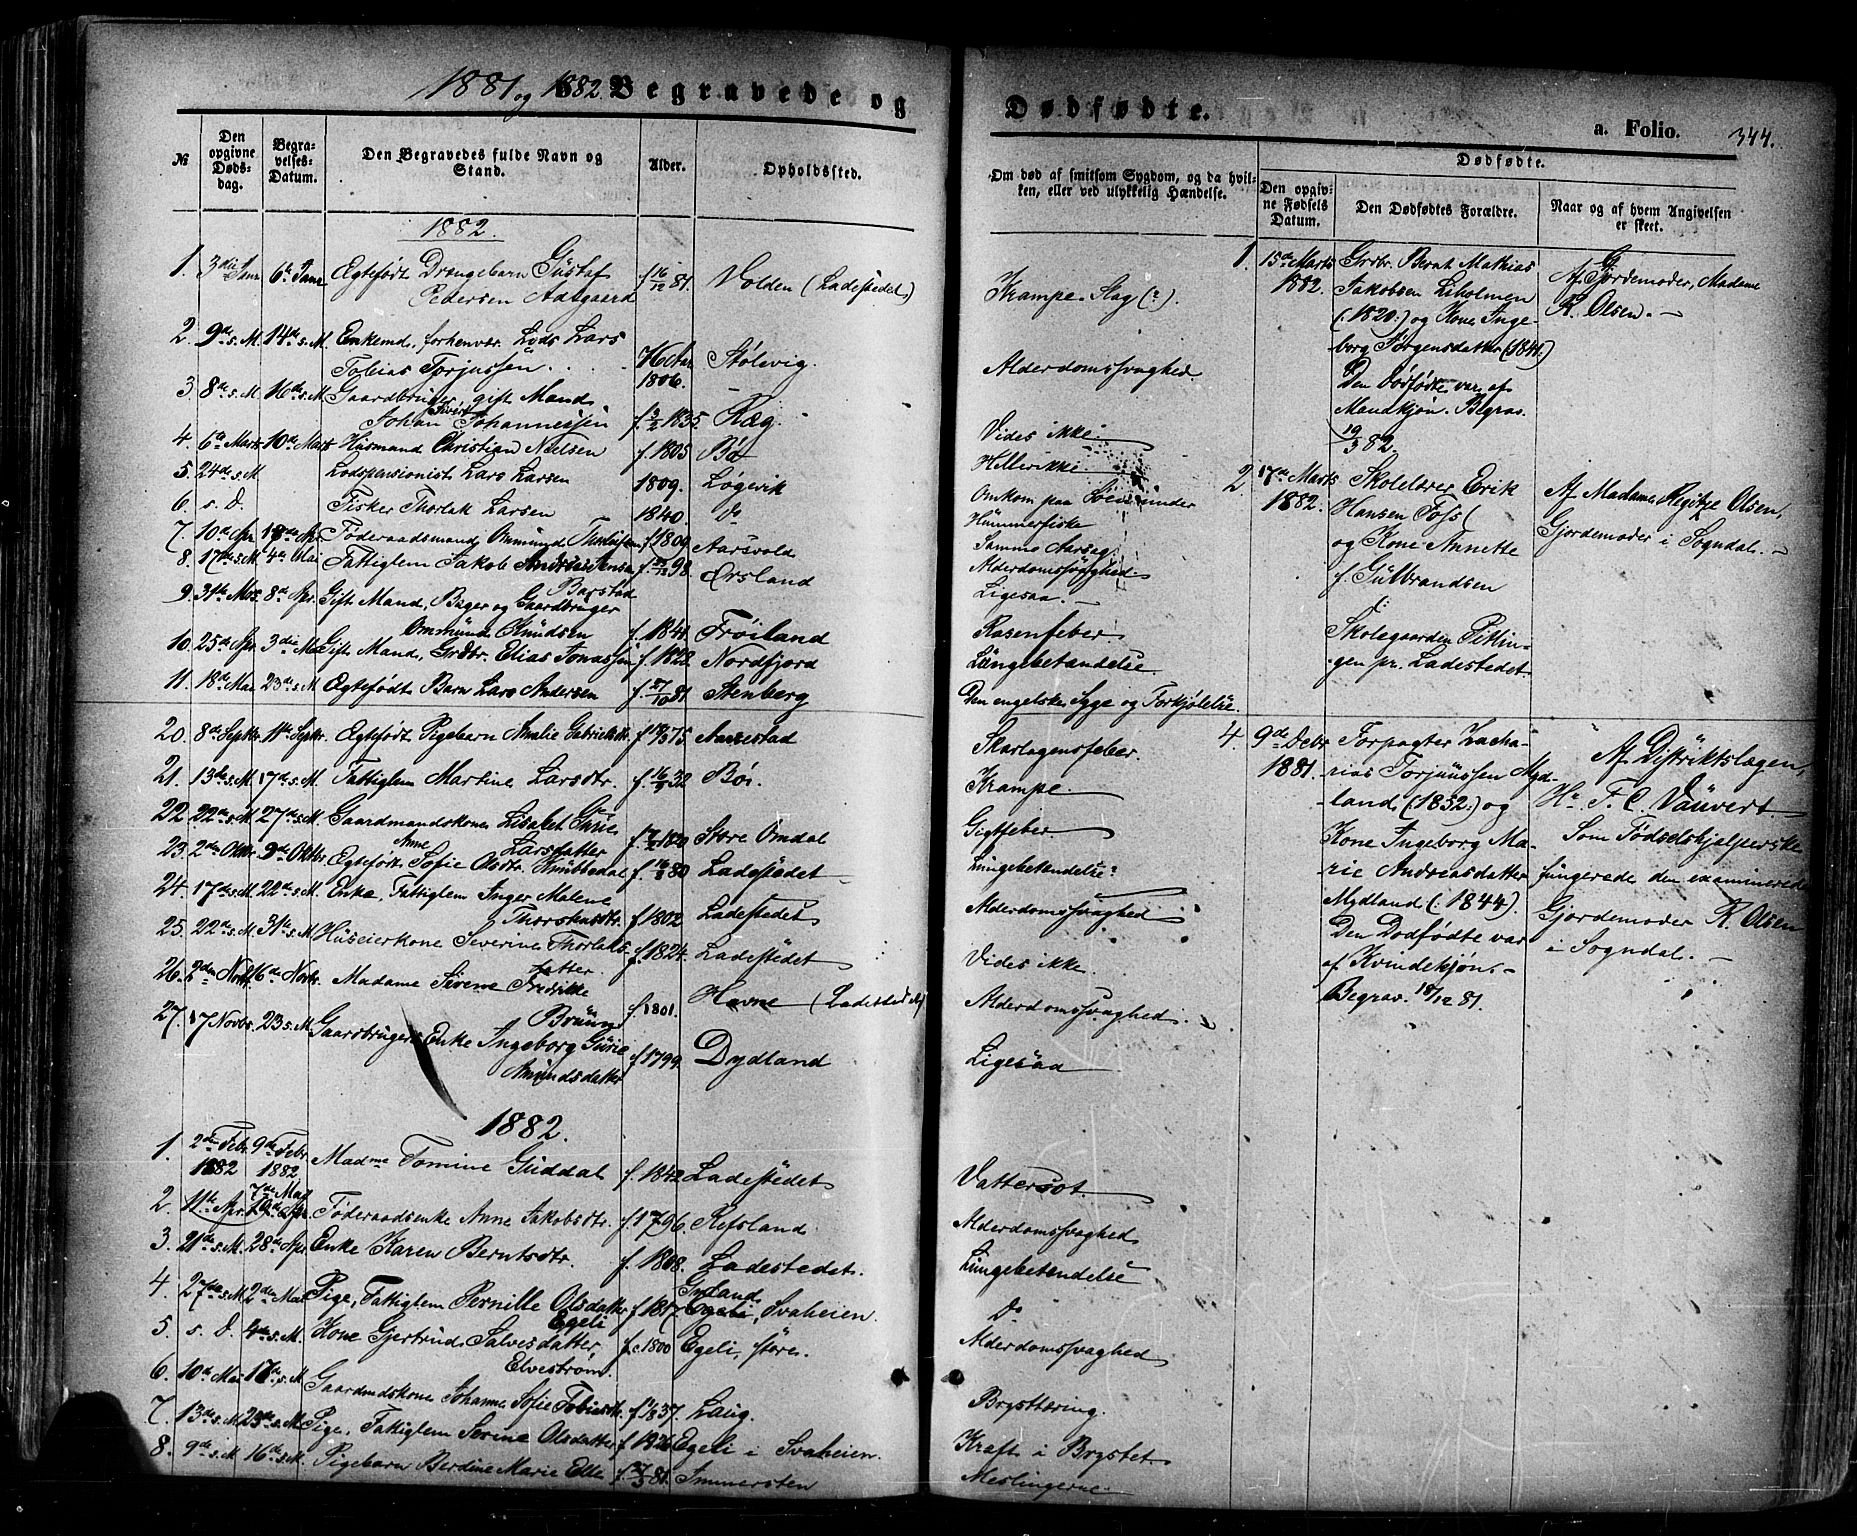 1881 og 1882. Begravede og
Dødfødte.
a. Folio. 344.
№
Den opgivne Døds-dag.
Begra-velses-Datum.
Den Begravedes fulde Navn og Stand.
Alder.
Opholdssted.
Om død af smitsom Sygdom, og da hvil-
ken, eller ved ulykkelig Hændelse.
Dødfødte.
Den opgiv-ne Fødsels Datum.
Den Dødfødtes Forældre.
Naar og af hvem Angivelsen er skeet.
1882.
1. 3die Janr 6te Janr Ægtefødt Drengebarn Gustaf f 16/12 81. Volden (Ladestedet)
Pedersen Aadsgaard Krampe-Slag (?).
2. 9de s. M. 14de s. M. Enkemd, forhenvær. Lods Lars
Tobias Torjussen Stølevig. Alderdomssvaghed
1806.
3. 8de s. M 16de s. M Gaardbruger, gift Mand
Johan Sivert Johannessen 1835. Ræg. Vides ikke
4. 6te Marts 10de Marts Husmand Christian Nielsen f. 1805 Bø
5. 24de s. M Lodspensionist Lars Larsen 1809. Løgevik Omkom paa Søen under
6. s. D. Fisker Thorlak Larsen 1840. Do Hummerfiske
7. 10de Apr. Føderaadsmand Ommund f 1809 Aarsvold Samme Aarsag
8. 17de s. M 4de Mai Fattiglem Jakob Ørsland Alderdomssvaghed
Barstad
9. 31te Mrs. 8de Apr. Gift Mand, Bager og Gaardbruger Ligesaa
Ommund Knudsen f. 1841. Frøiland Rosenfeber
10. 25de Apr 3die Mai Gift Mand, Grdbr. Elias Jonassen f 1828. Nordfjord Lungebetændelse
11. 18de Mai 23de s. M Ægtefødt Barn Lars Andersen f. 27/10 81 Stenberg
Den engelske Syge og Forkjølelse.
20. 8de Septbr. 11te Septbr. Ægtefødt Pigebarn Amalie Gabrielsdtr. Aarrestad Skarlagensfeber.
21. 13de s. M. 17de s. M. Fattiglem Martine Larsdtr. f 16/9 32 Bø. Krampe
22. 22de s. M 27de s. M Gaardmandskone Lisabet Gurie
Larsdatter Store Omdal Gigtfeber
23. 2de Oktbr. 9de Oktbr. Ægtefødt Anne Sofie Olsdtr. Knubbedal f. 80 Ladestedet Lungebetændelse
24. 17de s. M. 22de s. M. Enke, Fattiglem Inger Malene
f 1802 Ladestedet Alderdomssvaghed
25. 22de s. M. 31te s. M Huseierkone Severine Thorlaks-
datter. f 1824. Ladestedet Vides ikke.
26. 9de Novb. 16de Novbr. Madame Sirene Fredrikke
Bruun f. 1801. Havne (Ladestedet) Alderdomssvaghed
27. 17 Novbr. 23 s. M. Gaardbrugers Enke Ingeborg Gurie
Amundsdatter f 1799. Dydland Ligesaa
1882.
1. 2den Febr. 1882 9de Febr. 1882 Madme Tomine Guddal f. 1842 Ladestedet Vattersot.
7de Mai
2. 11te Apr. 19de Apr. Føderaadsenke Anne Jakobsdtr. f. 1796. Refsland Alderdomssvaghed
3. 21de s. M. 28de Apr. Enke Karen Berntsdtr. f. 1808. Ladestedet. Lungebetændelse
4. 27de s. M 2den Mai Pige, Fattiglem Pernille Olsdatter f 1817 Egeli, Svaheien. Do
Egeli
5. s. D. 4de s. M. Kone Gjertrud Salvesdatter f. c. 1800 Egeli, store. Alderdomssvaghed
Elvestrøm.
6. 10de Mai 17de s. M Gaardmdskone Johanne Sofie Tobiasdtr. f 1837. Laug. Brysttæring.
7. 13de s. M 23de s. M Pige, Fattiglem Serine Olsdatter f 1826 Egeli i Svaheien. Kræft i Brystet
8. 9de s. M 16de s. M Pigebarn Berdine Marie Elle f. 81. Immersten Meslingerne
1. 15de Marts Grdbr. Bernt Mathias Af Gjordemoder, Madame
1882. Jakobsen Liholmen R. Olsen. —
(: 1820:) og Kone Inge-
borg Jørgensdatter (1841)
Den Dødfødte var af
Mandkjøn. Begrav.
19/3 82.
2 17de Marts Skolelærer Erik Af Madame Regitze Olsen,
1882. Hansen Foss ( Gjordemoder i Sogndal. —
og Kone Annette
f. Gulbrandsen
Skolegaarden
gen pr. Ladestedet
4. 9de Debr Forpagter Zacha- Af Distriktslægen,
1881. rias Torjussen Myd- Hr. F. C. Vauvert
land (: 1852:) og Som Fødselshjelperske
Kone Ingeborg Ma- fungerede den examinerede
rie Andreasdatter Gjordemoder R. Olsen
Mydland (: 1844). i Sogndal. —
Den Dødfødte var
af Kvindekjøn. —
Begrav. 18/12 81.